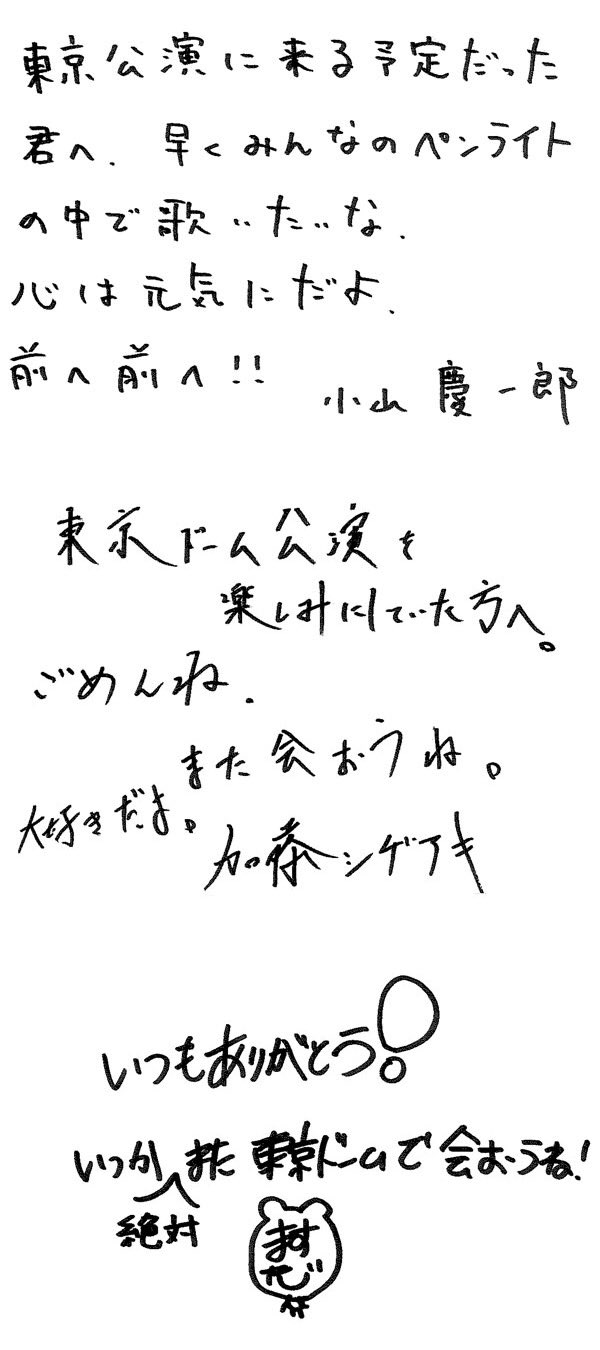 東京公演に来る予定だった
君へ. 早くみんなのペンライト
の中で歌いたいな.
心は元気にだよ.
前へ前へ!!
小山慶一郎
東京ドーム公演を
楽しみにしていた方へ。
ごめんね.
また会おうね。
大好きだよ。
加藤シゲアキ
いつもありがとう!
いつかまた東京ドームで会おうね!
絶対
ます